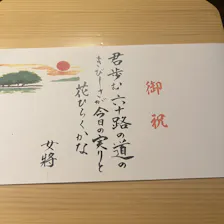 御祝
君歩む六十路の道の
きびしさが今日の実りと
花ひらくかな
女将